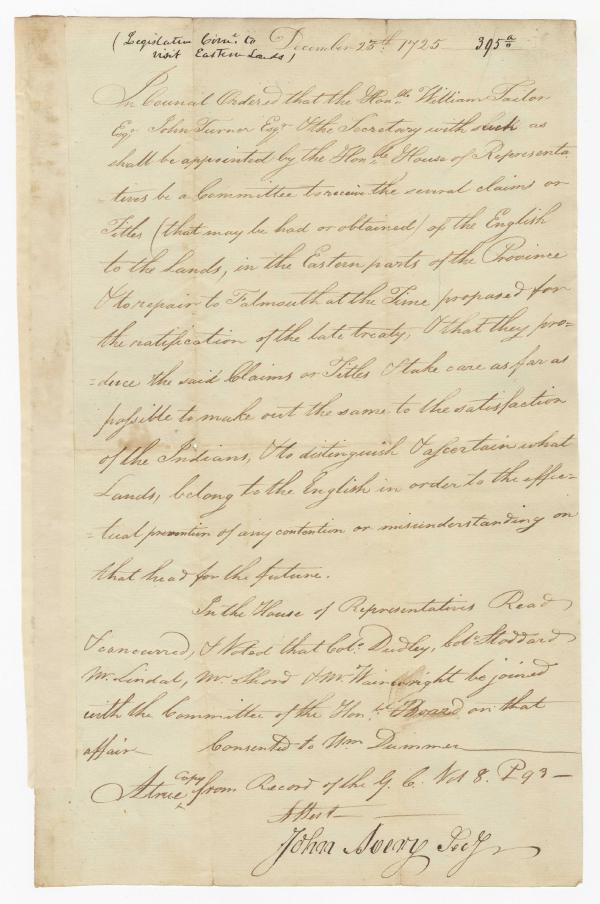 (Legislative Com.e to December 25th 1725 395 a/o
visit Eastern Lands)
In Council Ordered that the Hon.ble William Tailor
Esqr John Turner Esqr & the Secretary with such as
shall be appointed by the Hon.ble House of Representa
tives be a Committee to receive the several claims or
Titles (that may be had or obtained) of the English
to the Lands, in the Eastern parts of the Province
& to repair to Falmouth at the Time proposed for
the ratification of the late treaty, & that they pro-
-duce the said Claims or Titles & take care as far as
possible to make out the same to the satisfaction
of the Indians, & to distinguish & ascertain what
Lands, belong to the English in order to the effec-
-tual prevention of any contention or misunderstanding on
that head for the future.
In the House of Representatives Read
& concurred, & Noted that Col.o Dudley, Col.o Stoddard
Mr. Lindal, Mr Shord & Mr. Wainwright be joined
with the Committee of the Hon.ble Board on that
affair Consented to Wm Dummer
A true Copy from Record of the G. C. Vol 8. P 93 —
Attest
John Avery Secy